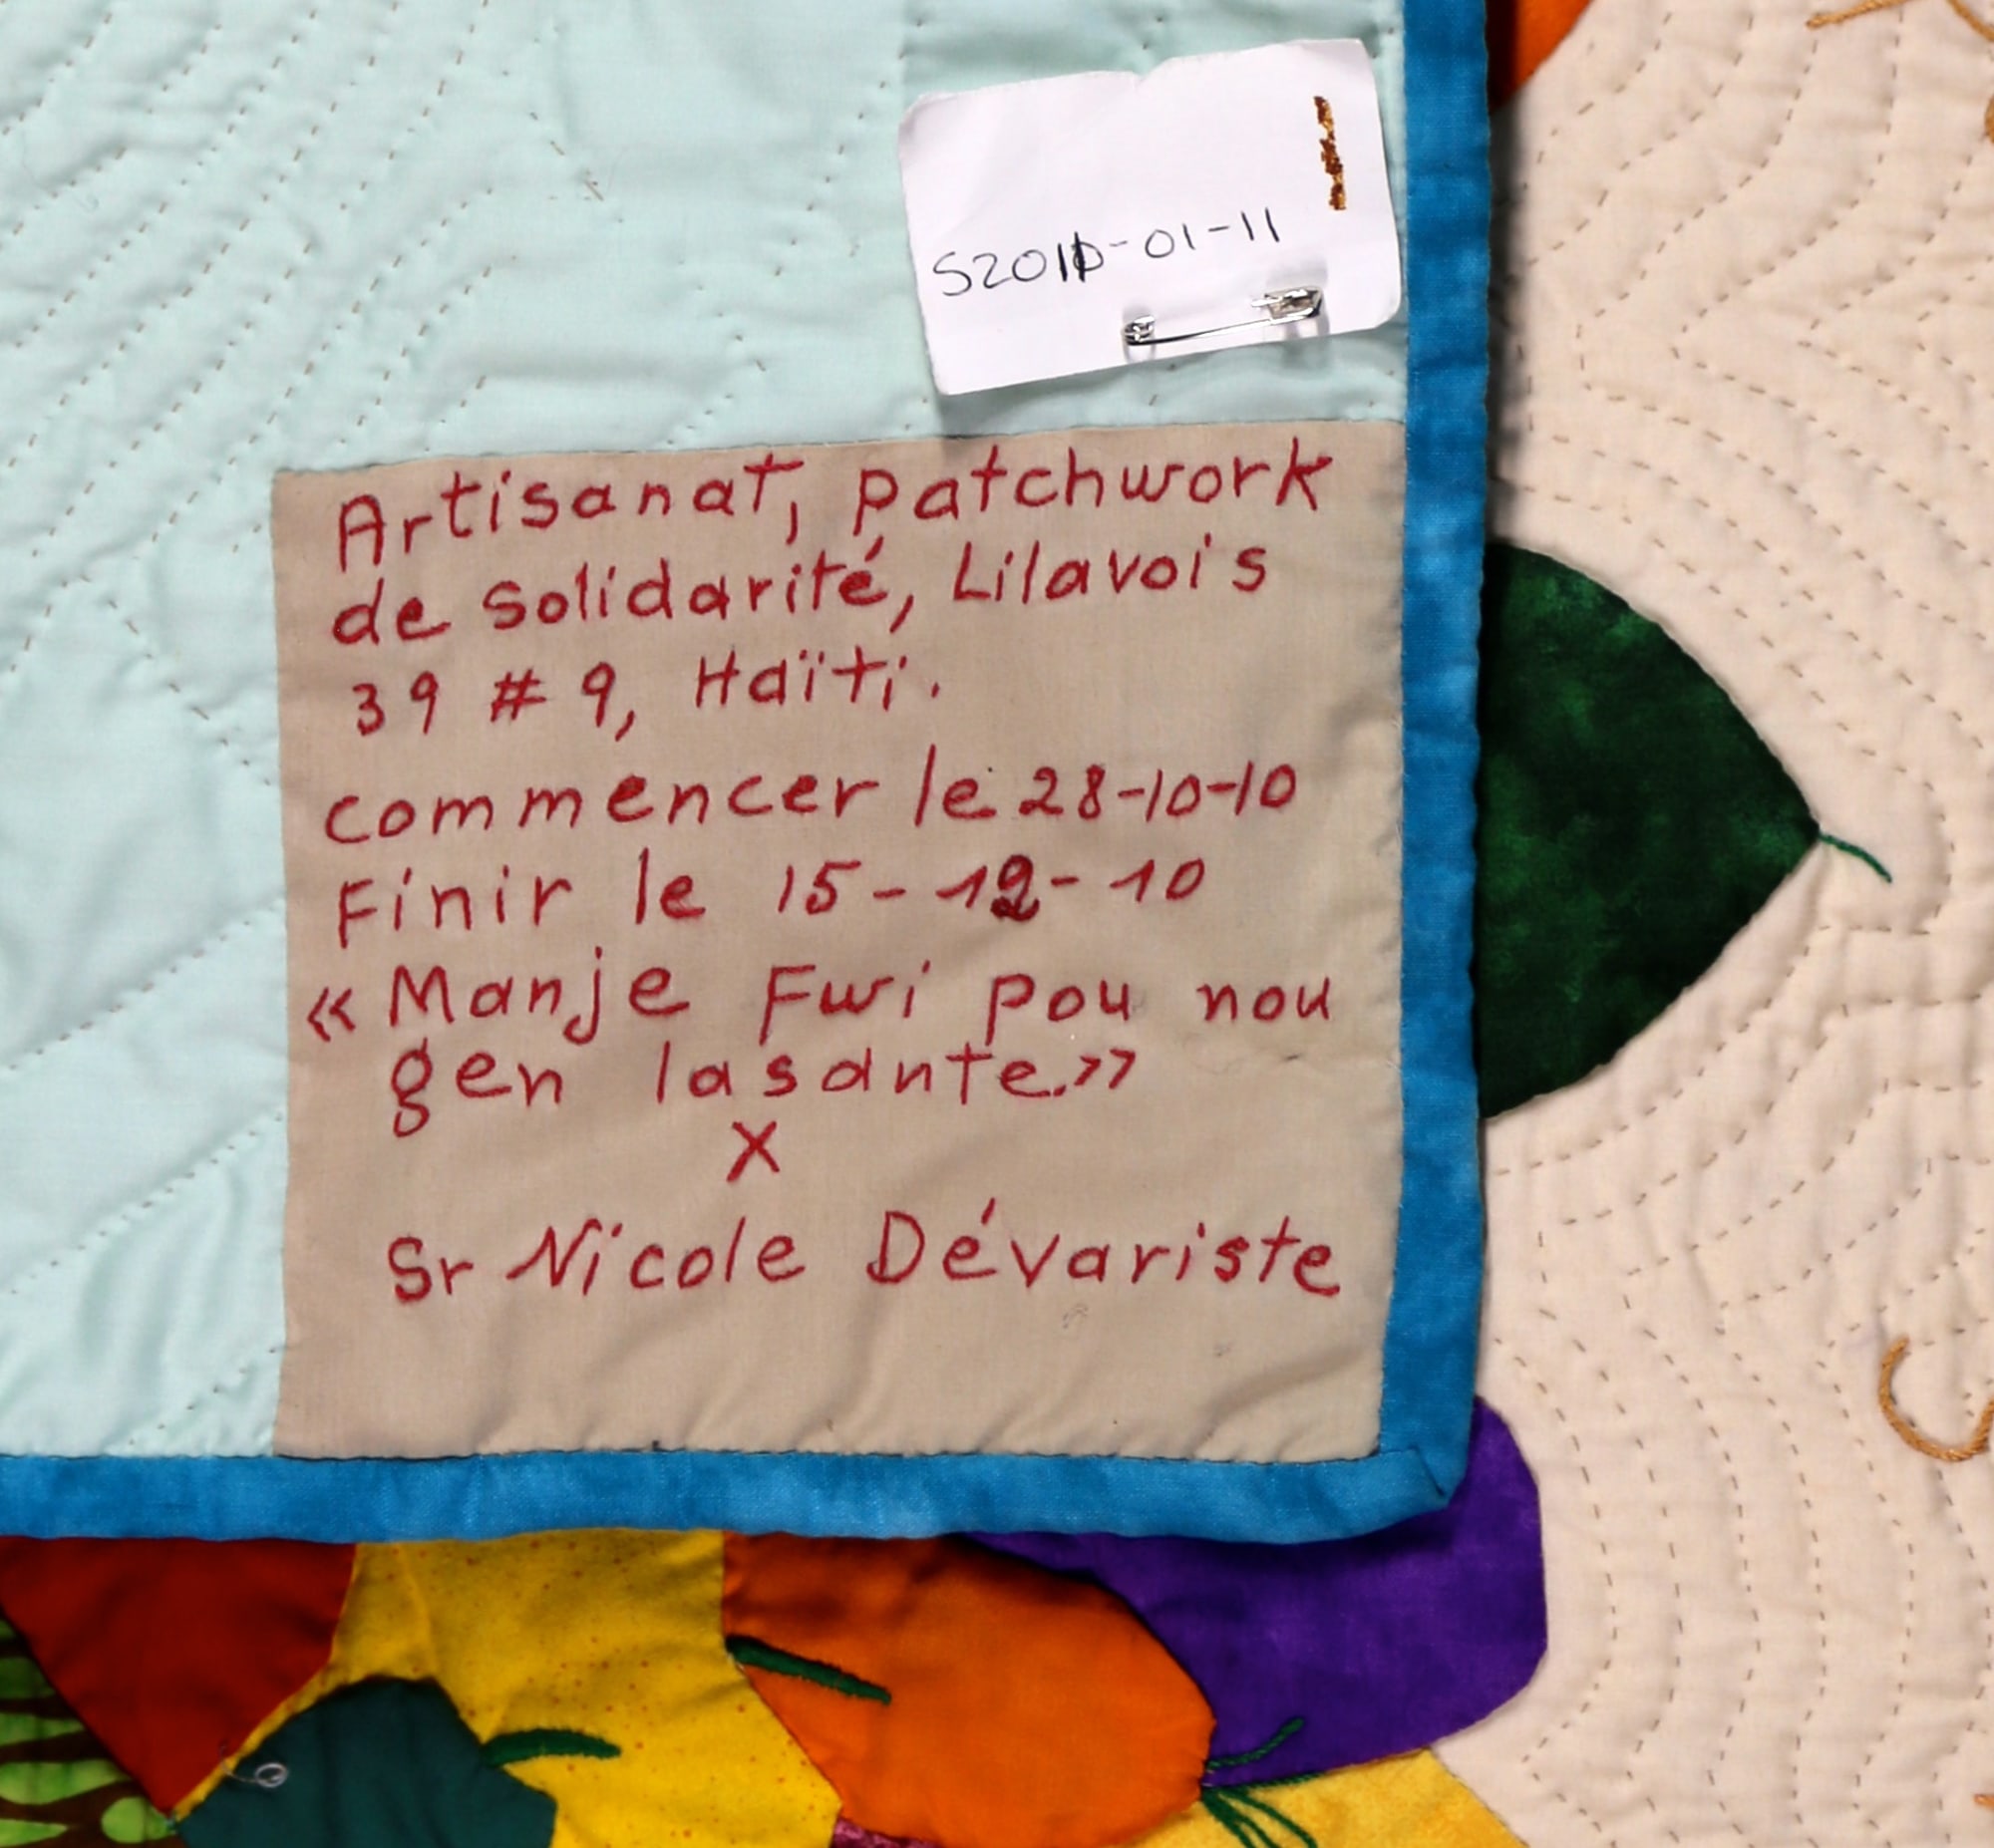 S2011-01-11
Artisanat, patchwork
de solidarité, Lilavois
39 # 9, Haïti.
commencer le 28-10-10
Finir le 15-12-10
«Manje Fwi pou nou
gen lasante.»
X
Sr Nicole Dévariste